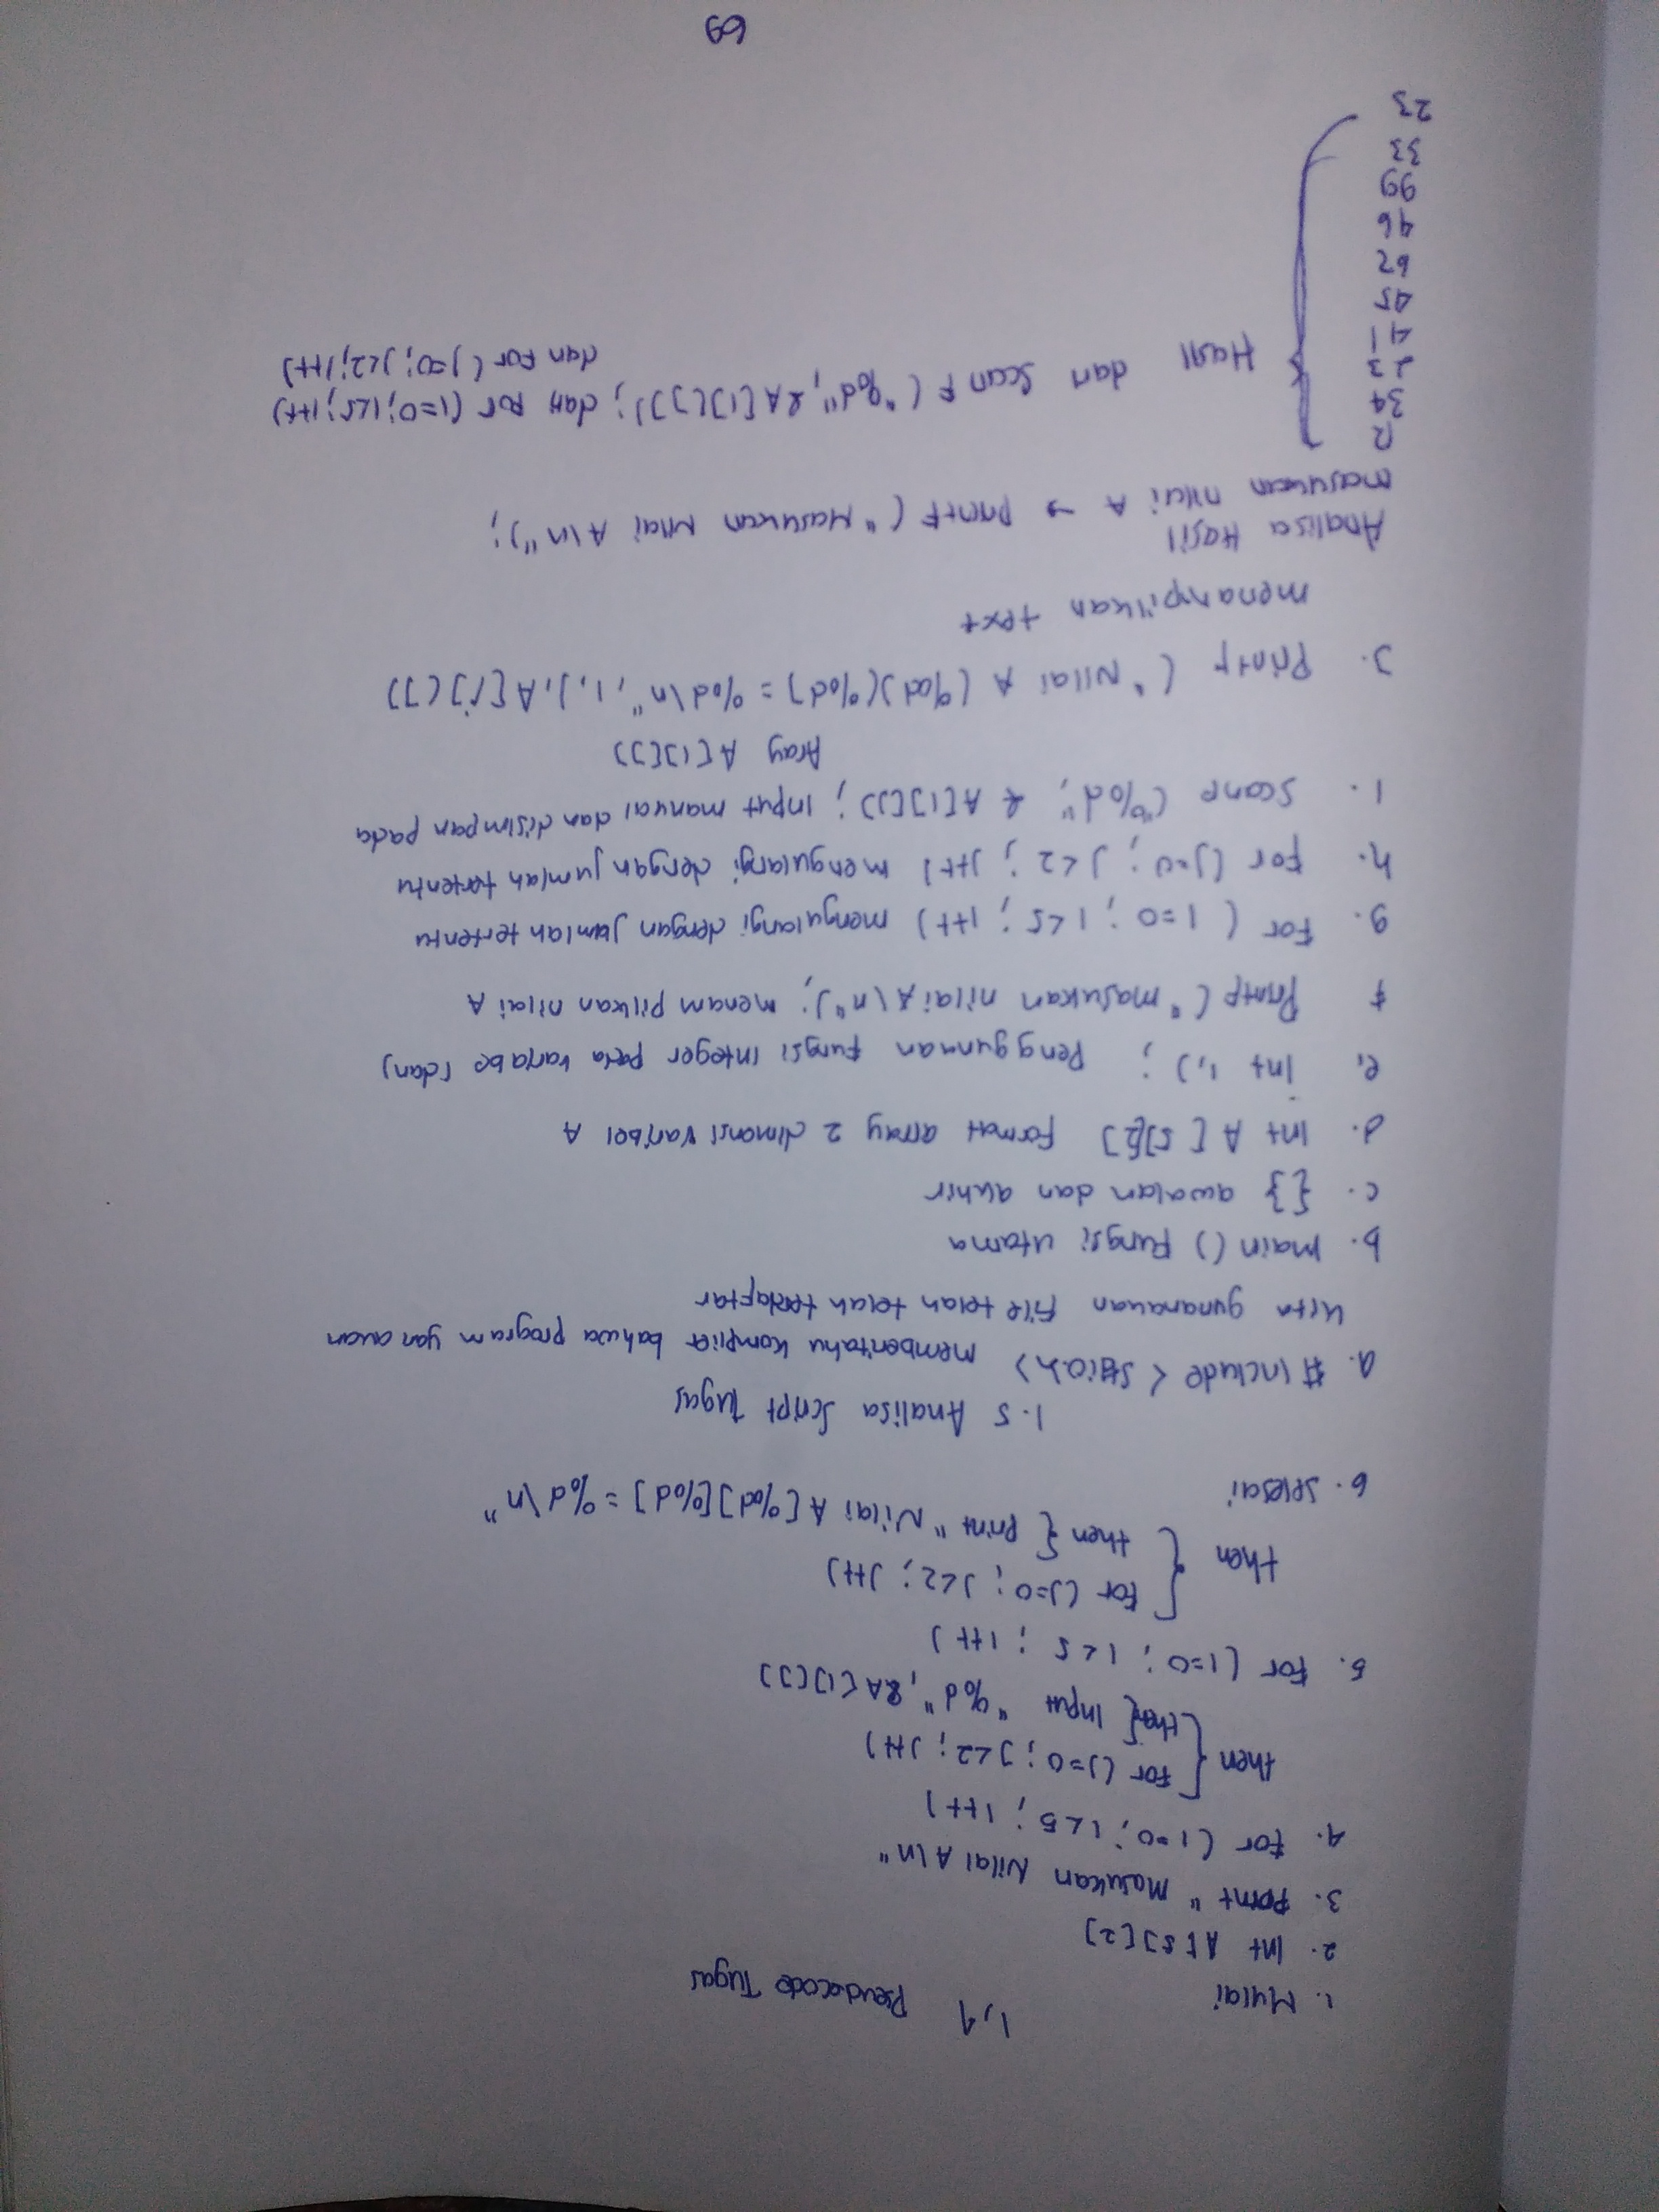 1,4 Pseudocode Tugas
1. Mulai
2. Int A[5][2]
3. Print "Masukan Nilai A\n"
4. For (i=0; i<5; i++)
then { For (j=0; j<2; j++)
{then{ Input "%d", &A[i][j])
5. For (i=0; i<5; i++)
then { For (j=0; j<2; j++)
then { Print "Nilai A[%d][%d] = %d\n"
6. Selesai
1.5 Analisa Script Tugas
a. #include <stdio.h> memberitahu kompiler bahwa program yan akan
kita gunanakan file telah telah terdaftar
b. main () Fungsi utama
c. {} awalan dan akhir
d. Int A[5][2] Format array 2 dimensi Varibel A
e. Int i,j; Penggunaan fungsi integer pada variabe (dan j
f Printf ("masukan nilai A\n"); menampilkan nilai A
g. For (i=0; i<5; i++) mengulangi dengan jumlah tertentu
h. For (j=0; j<2; j++) mengulangi dengan jumlah tertentu
i. Scanf ("%d", & A[i][j]); Input manual dan disimpan pada
Aray A[i][j])
j. Printf ("Nilai A (%d)(%d) = %d\n", i,j, A[i][j])
menampilkan text
Analisa Hasil
masukan nilai A → Printf ("Masukan Nilai A\n");
12
34
23
41
45
62
46
99
33
23
Hasil dan Scanf ("%d", &A[i][j]); dan For (i=0; i<5; i++)
dan For (j=0; j<2; j++)
69